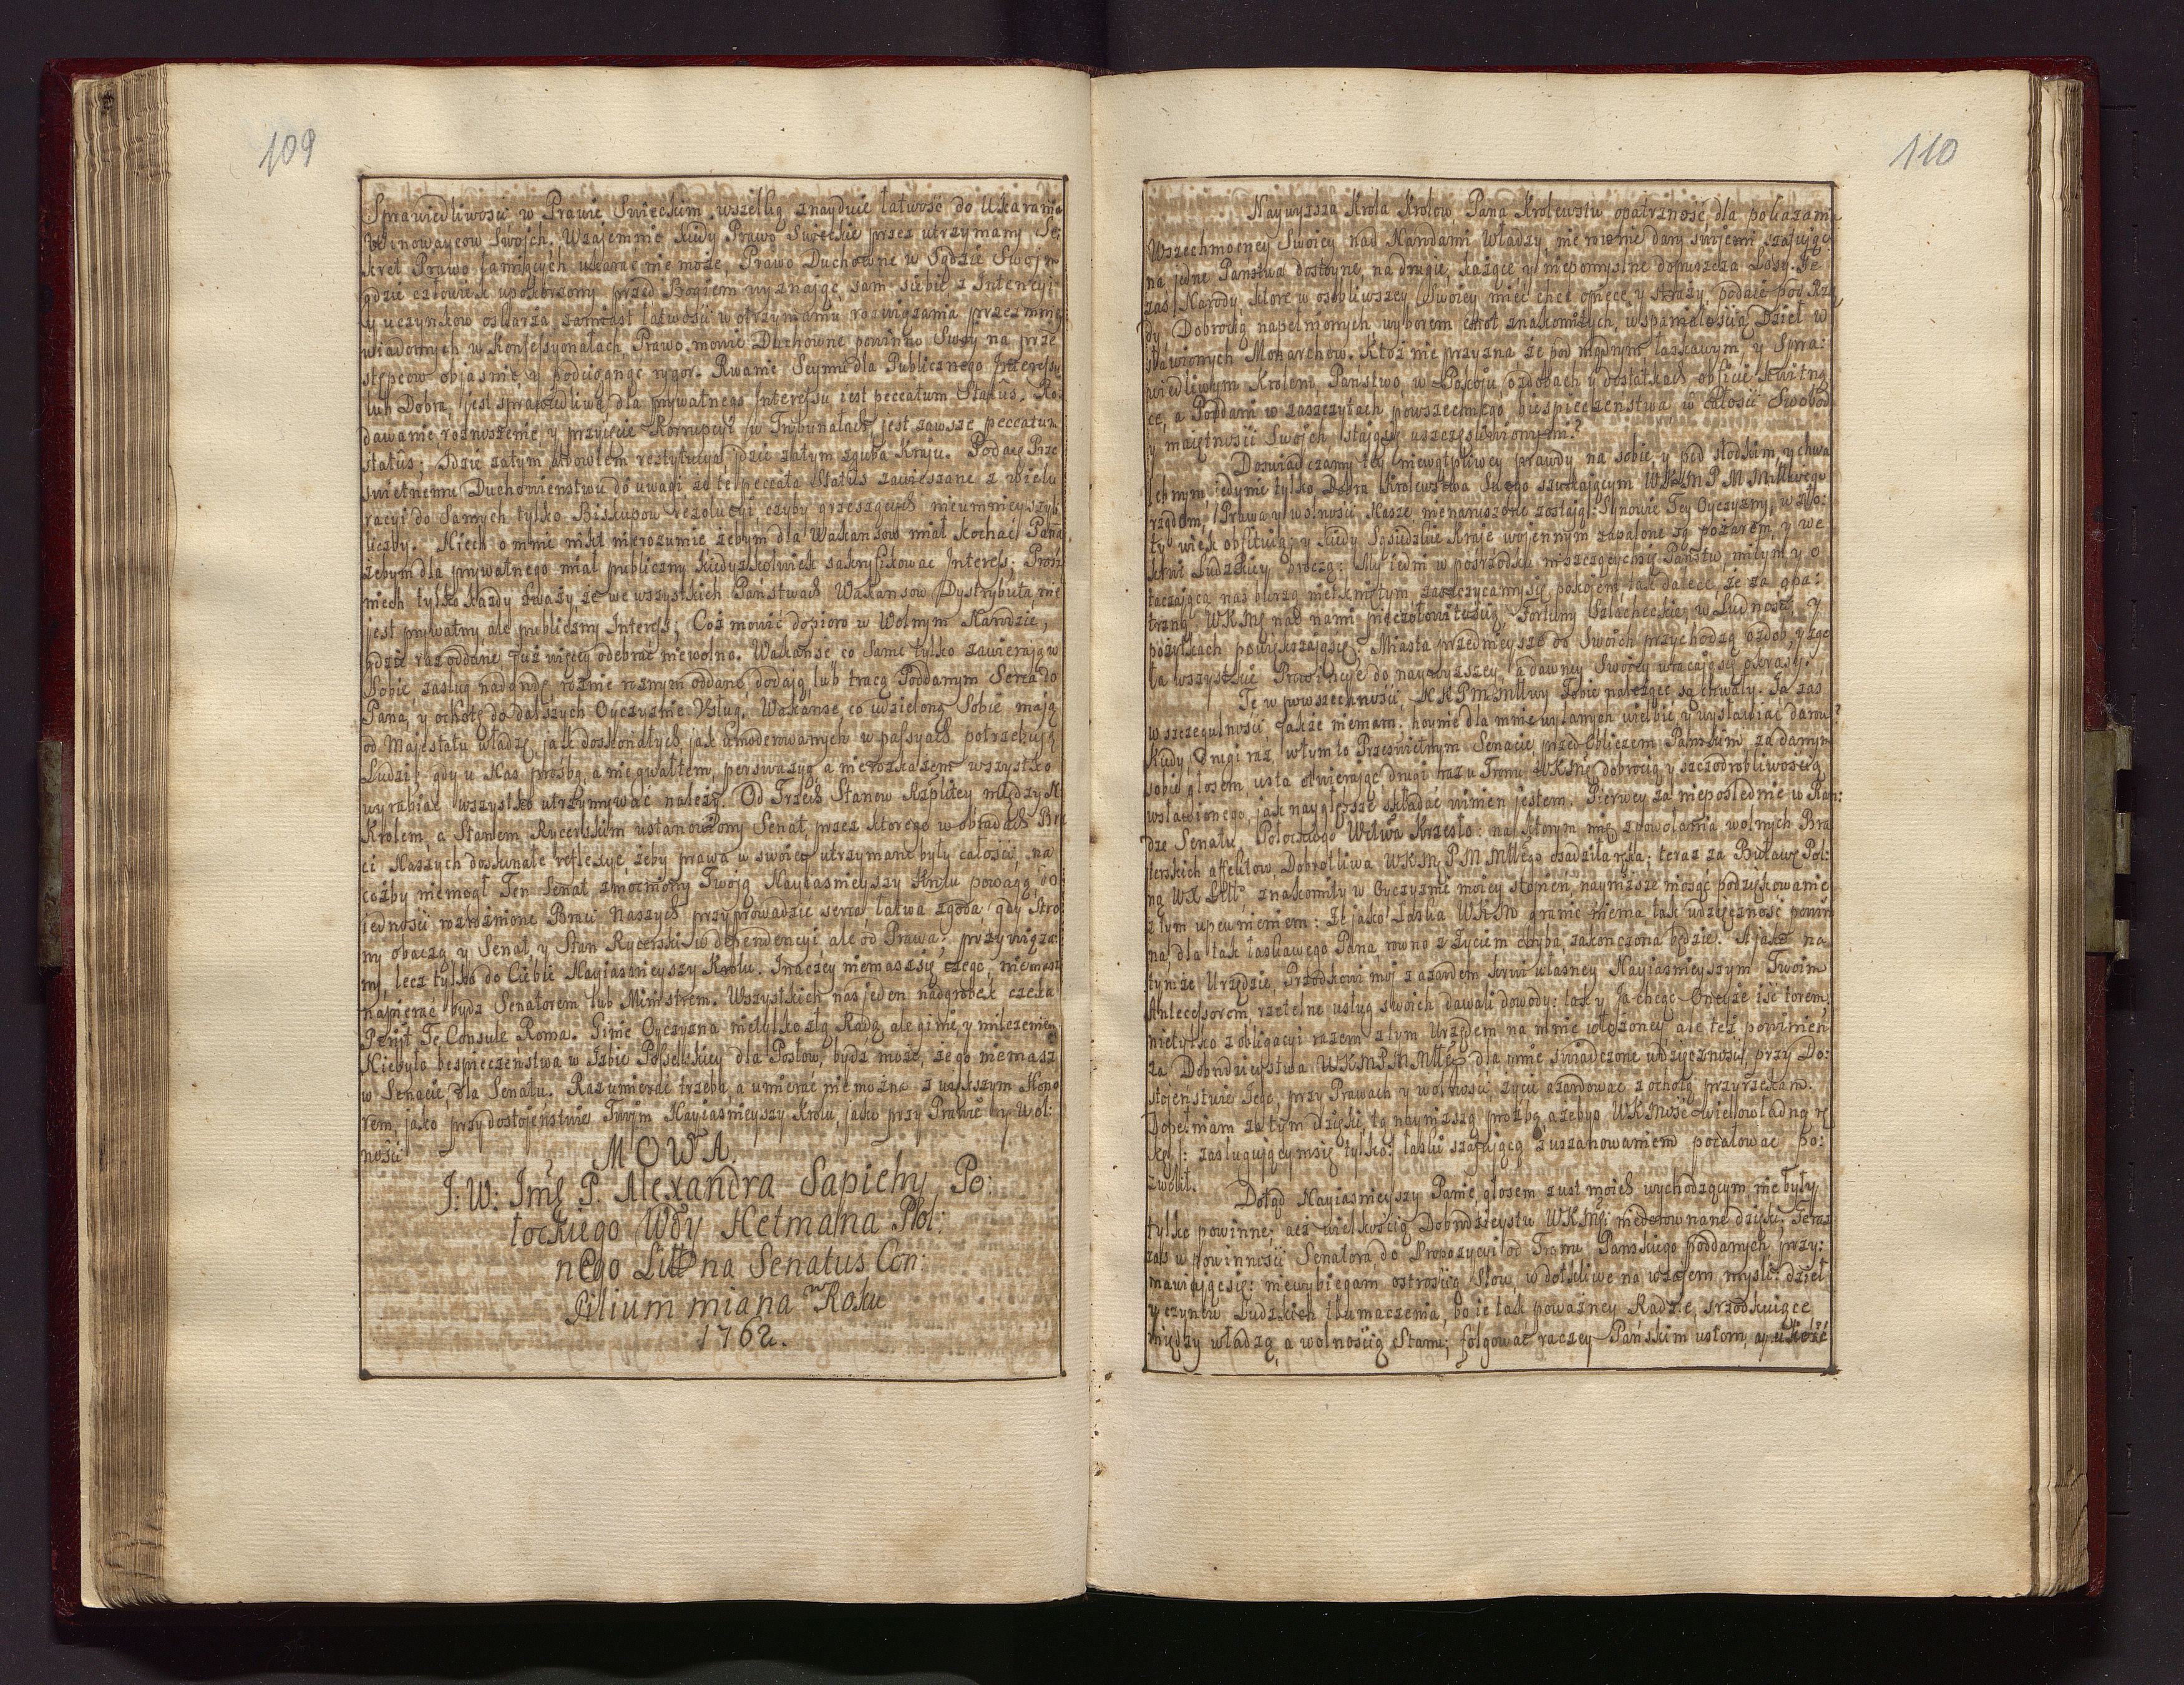 109
Sprawiedliwosci w Prawie Swieckim wszelką znayduie łatwość do Ukarania
Winowaycow Swoich. Wzajemnie kiedy Prawo Swieckie przez utrzymany Se-
kret Prawo łamiących ukarać nie może, Prawo Duchowne w Sądzie Swoim
gdzie człowiek upokorzony przed Bogiem wyznając, sam siebie z Intencyi
y uczynkow oskarża, zamiast łatwości w otrzymaniu rozwiązania przezemnie
wiadomych w Konfessyonałach, Prawo mowie Duchowne powinno Swoy na prze
stępcow objasnić y podciągnąć rygor. Rwanie Seymu dla Publicznego Interessu
lub Dobra, jest sprawiedliwe, dla prywatnego Interessu iest peccatum Status, Ro
dawanie, roznoszenie, y przyięcie Korrupcyi w Trybunałach, jest zawsze peccatum
status; Idzie zatym albowiem restytucya, idzie zatym zguba Kraju. Podaię Prze
swietnemu Duchowienstwu do uwagi że te peccata Status zawieszane z wielu
racyi do Samych tylko Biskupow rezolucyi, czyby grzeszących nieumnieyszyli
liczby. Niech o mnie nikt nierozumie żebym dla Wakansow miał kochać Pana,
żebym dla prywatnego miał publiczny kiedyżkolwiek sakryfikować Interess;
niech tylko każdy zważy że we wszystkich Państwach Wakansow Dystrybuta, nie
jest prywatny ale publiczny Interess; Coż mowić dopiero w Wolnym Narodzie,
gdzie raz oddane już więcey odebrać niewolno. Wakanse co same tylko zawierają w
Sobie zasług nadgrodę rożnie rożnym oddane, dodają, lub tracą Poddanym Serca do
Pana, y ochotę do dalszych Oyczyznie Usług. Wakanse, co udzieloną Sobie mają
od Majestatu władzę, jak doskonałych, jak umoderowanych w passyach potrzebują
Ludzi, gdy u Nas prozbą, a nie gwałtem, perswazyą a nierozkazem wszystko
wyrabiać, wszystko utrzymywać należy. Od Trzech Stanow Rzplitey między
Krolem, a Stanem Rycerskim ustanowiony Senat przez ktorego w obradach Bra
ci Naszych doskonałe reflexye, żeby prawa w swoiey utrzymane były całości, na
cożby niemogł Ten Senat zmocniony Twoją Nayiasnieyszy Krolu powagą, do
iednosci rozrożnione Braci Naszych przyprowadzić serca, łatwa zgoda: gdy Stro
ny obaczą y Senat, y Stan Rycerski w dependencyi, ale od Prawa; przywiąza
ny, lecz tylko do Ciebie Nayiasnieyszy Krolu. Inaczey niemasz się czego,
napierać bydz Senatorem lub Ministrem. Wszystkich nas jeden nadgrobek czeka
Perijt Te Consule Roma. Ginie Oyczyzna nietylko złą Radą, ale ginie, y milczeniem
Niebyło bespieczenstwa w Izbie Posselskiey dla Posłow, bydz może, że go niemasz
w Senacie, dla Senatu. Razumierać trzeba, a umierać nie można z większym Hono
rem, jako przy dostojenstwie Twym Nayiasnieyszy Krolu, jako przy Prawie y Wol:
ności
MOWA.
J: W: Jmć P. Alexandra Sapiehy Po:
łockiego Wdy Hetmana Pol:
nego Litt na Senatus Con:
silium miana Roku
1762.
110
Naywyzsza Krola Krolow, Pana Krolewstw opatrzność, dla pokazania
Wszechmocney Swoiey nad Narodami Władzy, nie rownie dary swiemi szafując
na jedne Państwa dostoyne, na drugie, każące y niepomyslne dopuszcza Losy. Te
zas Narody, ktore w osobliwszey Swoiey mieć chce opiece, y straży, podaie pod Rzą
dy Dobrocią napełnionych, wyborem cnot znakomitych, wspaniałoscią Dzieł w
sławionych Monarchow. Ktoż nie przyzna że pod mądrym, łaskawym, y Spra:
wiedliwym Krolem, Państwo w Pokoju, ozdobach y dostatkach obficie kwitną
ce, a Poddani w zaszczytach powszechnego bespieczenstwa, w całości Swobod
y maiętności Swoich stają się uszczęsliwionymi?
Doswiadczamy tey niewątpliwey prawdy na sobie, y pod słodkim, y chwa
lebnym, iedynie tylko Dobra Krolewstwa Swego szukającym WKM PM Miłłciwego
rządem, Prawa y wolności Nasze nienaruszone zostają: Synowie Tey Oyczyzny, w zło:
ty wiek obfituią, y kiedy Sąsiedzkie Kraje wojennym zapalone są pożarem, y we
krwi Ludzkiey broczą: My iedni w posrzodku niszczących się Państw, miłym y o
taczającą nas burzą nietkniętym zaszczycamy się pokojem, tak dalece, że za opa:
trzną WKMć nad nami pieczołowitoscią, Fortuny Szlacheckie, w Ludność, y
pożytkach powiększają się. Miasta przednieysze do Swoich przychodzą ozdob, y zgo
ła wszystkie Prowincye do naywyższey, a dawney Swoiey wracają się okrasy.
Te w powszechności, NKPM Młłwy Tobie należące są chwały. Ja zas
w szczegulności, jakże niemam hoynie dla mnie wylanych wielbić y wysławiać darow?
Kiedy Drugi raz w tymto Przeswietnym Senacie, przed Obliczem Pańskim, zadanym
sobie głosem usta otwierając, drugi raz u Tronu WKMć dobrocią y szczodrobliwoscią
wsławionego, jak naygłębsze składać winien jestem. Pierwey za nieposlednie w Ran:
dze Senatu, Połockiego Wdztwa Krzesło: na ktorym mię z powołania wolnych Bra
terskich affektow Dobrotliwa WKM PM Młłego osadziła ręka; teraz za Buławę Pol:
ną WXLitt znakomity w Oyczyznie moiey stopień, nayniższe niosąc podziękowanie
z tym upewnieniem: że jako Łaska WKM granic niema tak wdzięczność powin
na, dla tak łaskawego Pana, rowno z życiem chyba zakończona będzie. A jako na
tymże Urzędzie, Przodkowi moi z azardem krwi własney Nayiasnieyszym Twoim
Antecessorom, rzetelne usług swoich dawali dowody: tak y Ja chcąc Onegże iść torem,
nietylko z obligacyi razem z tym Urzędem na mnie włożoney, ale też powinien
za Dobrodzieystwa WKMPM Młłę dla mnie swiadczone wdzięczności, przy Do:
stojeństwie Jego, przy Prawach y wolność, życie azardować z ochotą przyrzekam.
Dopełniam zatym dzięki, tą nayniższą prozbą, ażebyś WKMość wielowładną rę
kę /: zasługującymsię tylko:/ łaski szafującą z uszanowaniem pocałować po:
zwolił.
Dotąd Nayiasnieyszy Panie głosem z ust moich wychodzącym, nie były
tylko powinne, acz wielkością Dobrodzieystw WKMci niedorownane dzięki. Teraz
zas w powinności Senatora, do Propozycyi od Tronu Pańskiego poddanych przy:
mawiając się: niewybiegam ostroscią słow, w dotkliwe na wzajem mysli, dzieł
y czynow Ludzkich tłumaczenia, bo ie tak poważney Radzie, srzodkuiące
między władzą, a wolnoscią Stanu, folgować raczey Pańskim ustom, a